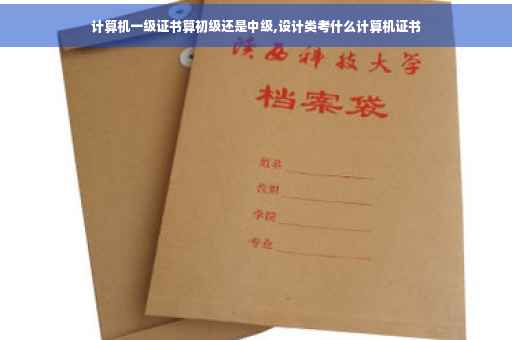 计算机一级证书算初级还是中级,设计类考什么计算机证书
陕西科技大学
档案袋
姓名
学院
专业